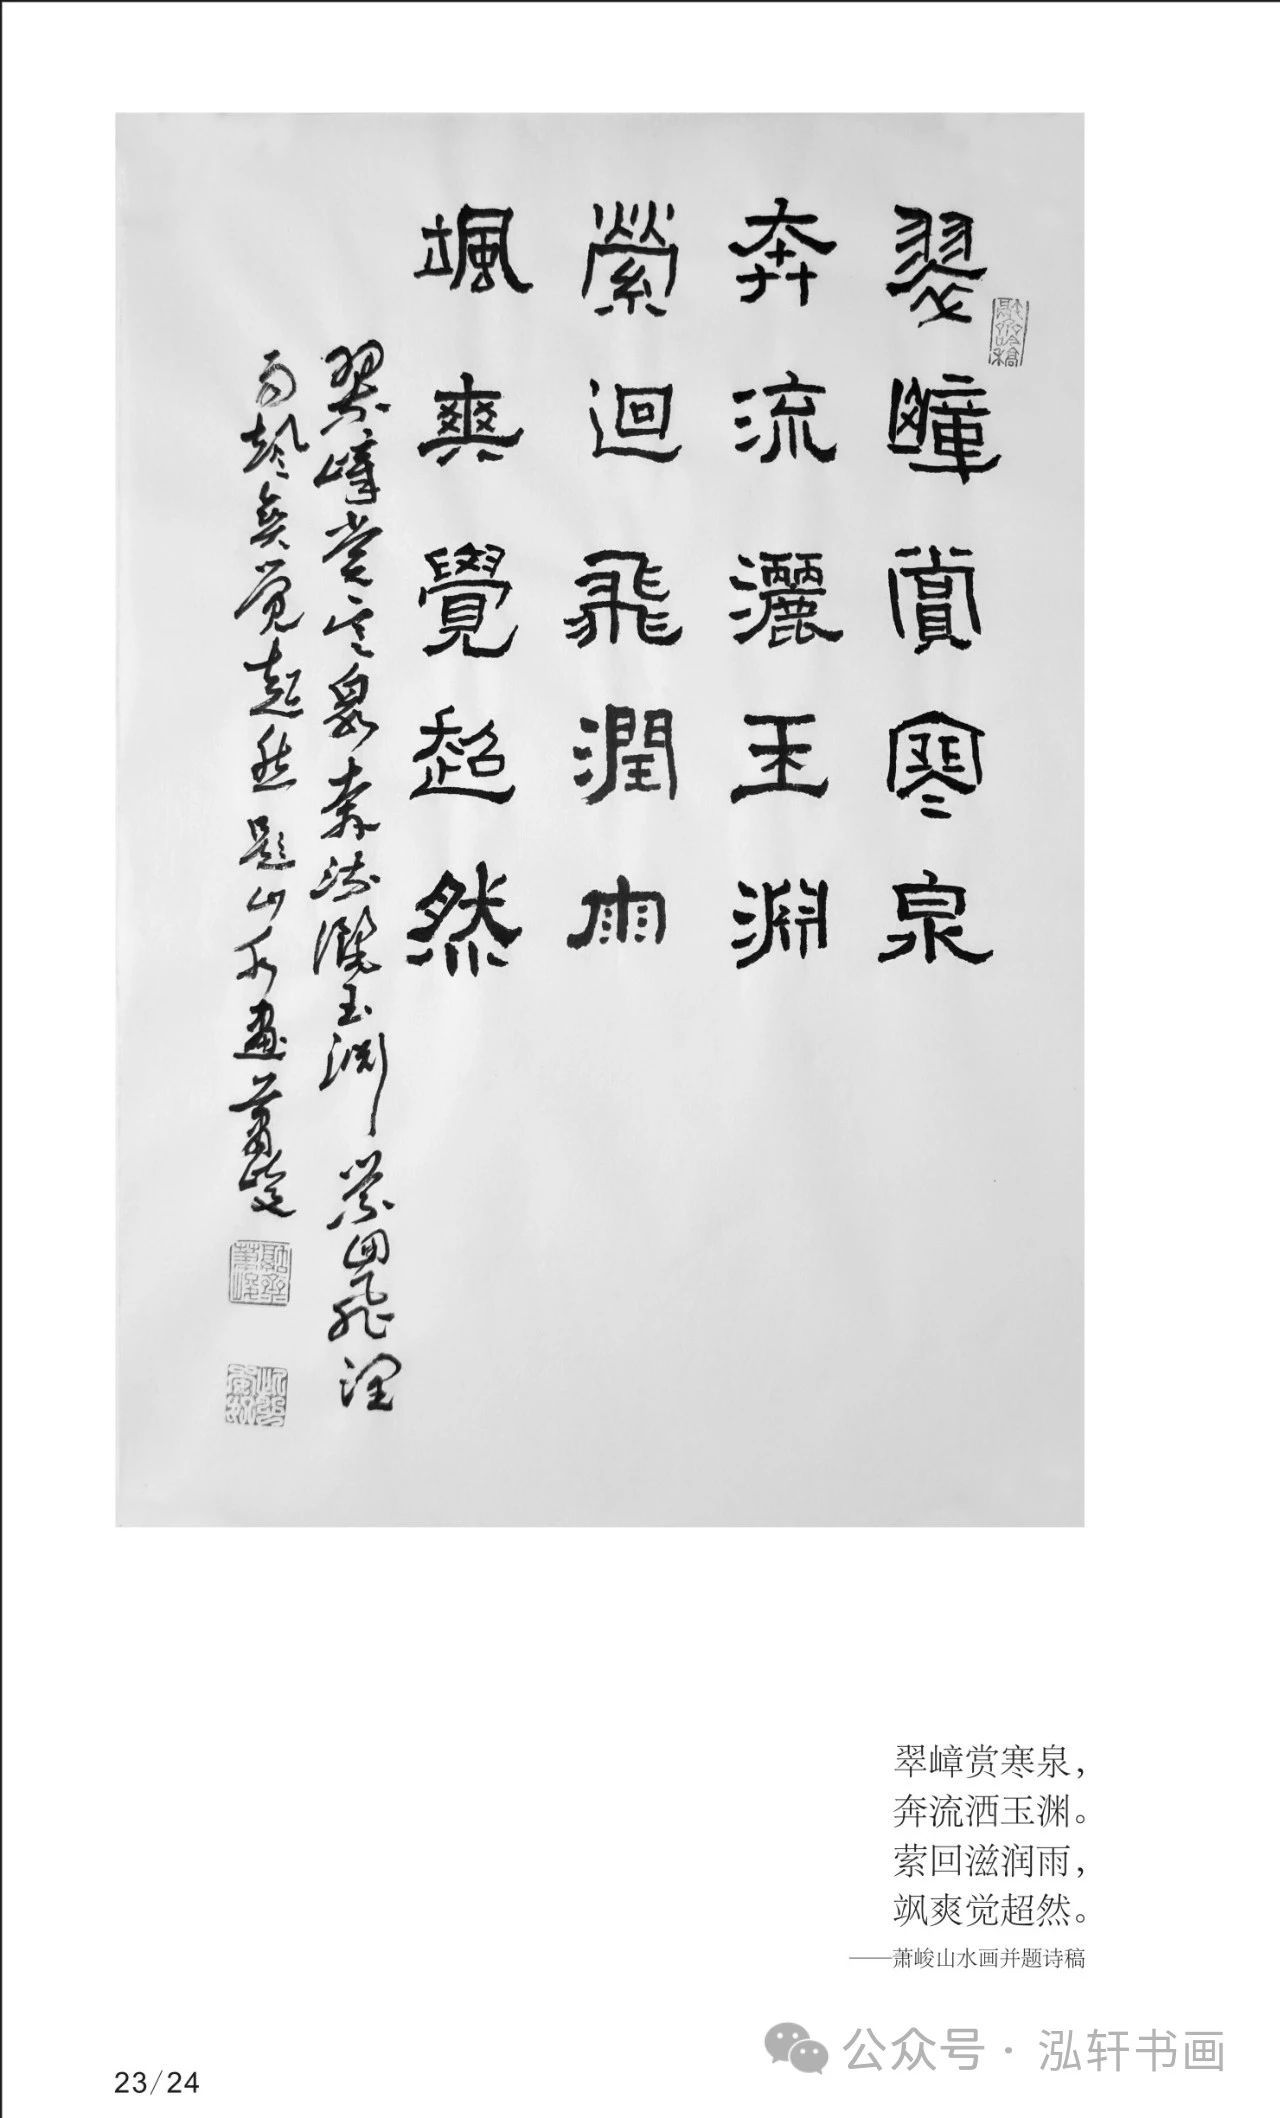 翠嶂賞寒泉
奔流灑玉淵
縈迴飛潤雨
颯爽覺超然
翠嶂赏寒泉奔流灑玉渊萦回飛润
雨颯爽觉超然题山水畫萧峻
翠嶂赏寒泉，
奔流洒玉渊。
萦回滋润雨，
飒爽觉超然。
——萧峻山水画并题诗稿
公众号·泓轩书画
23/24